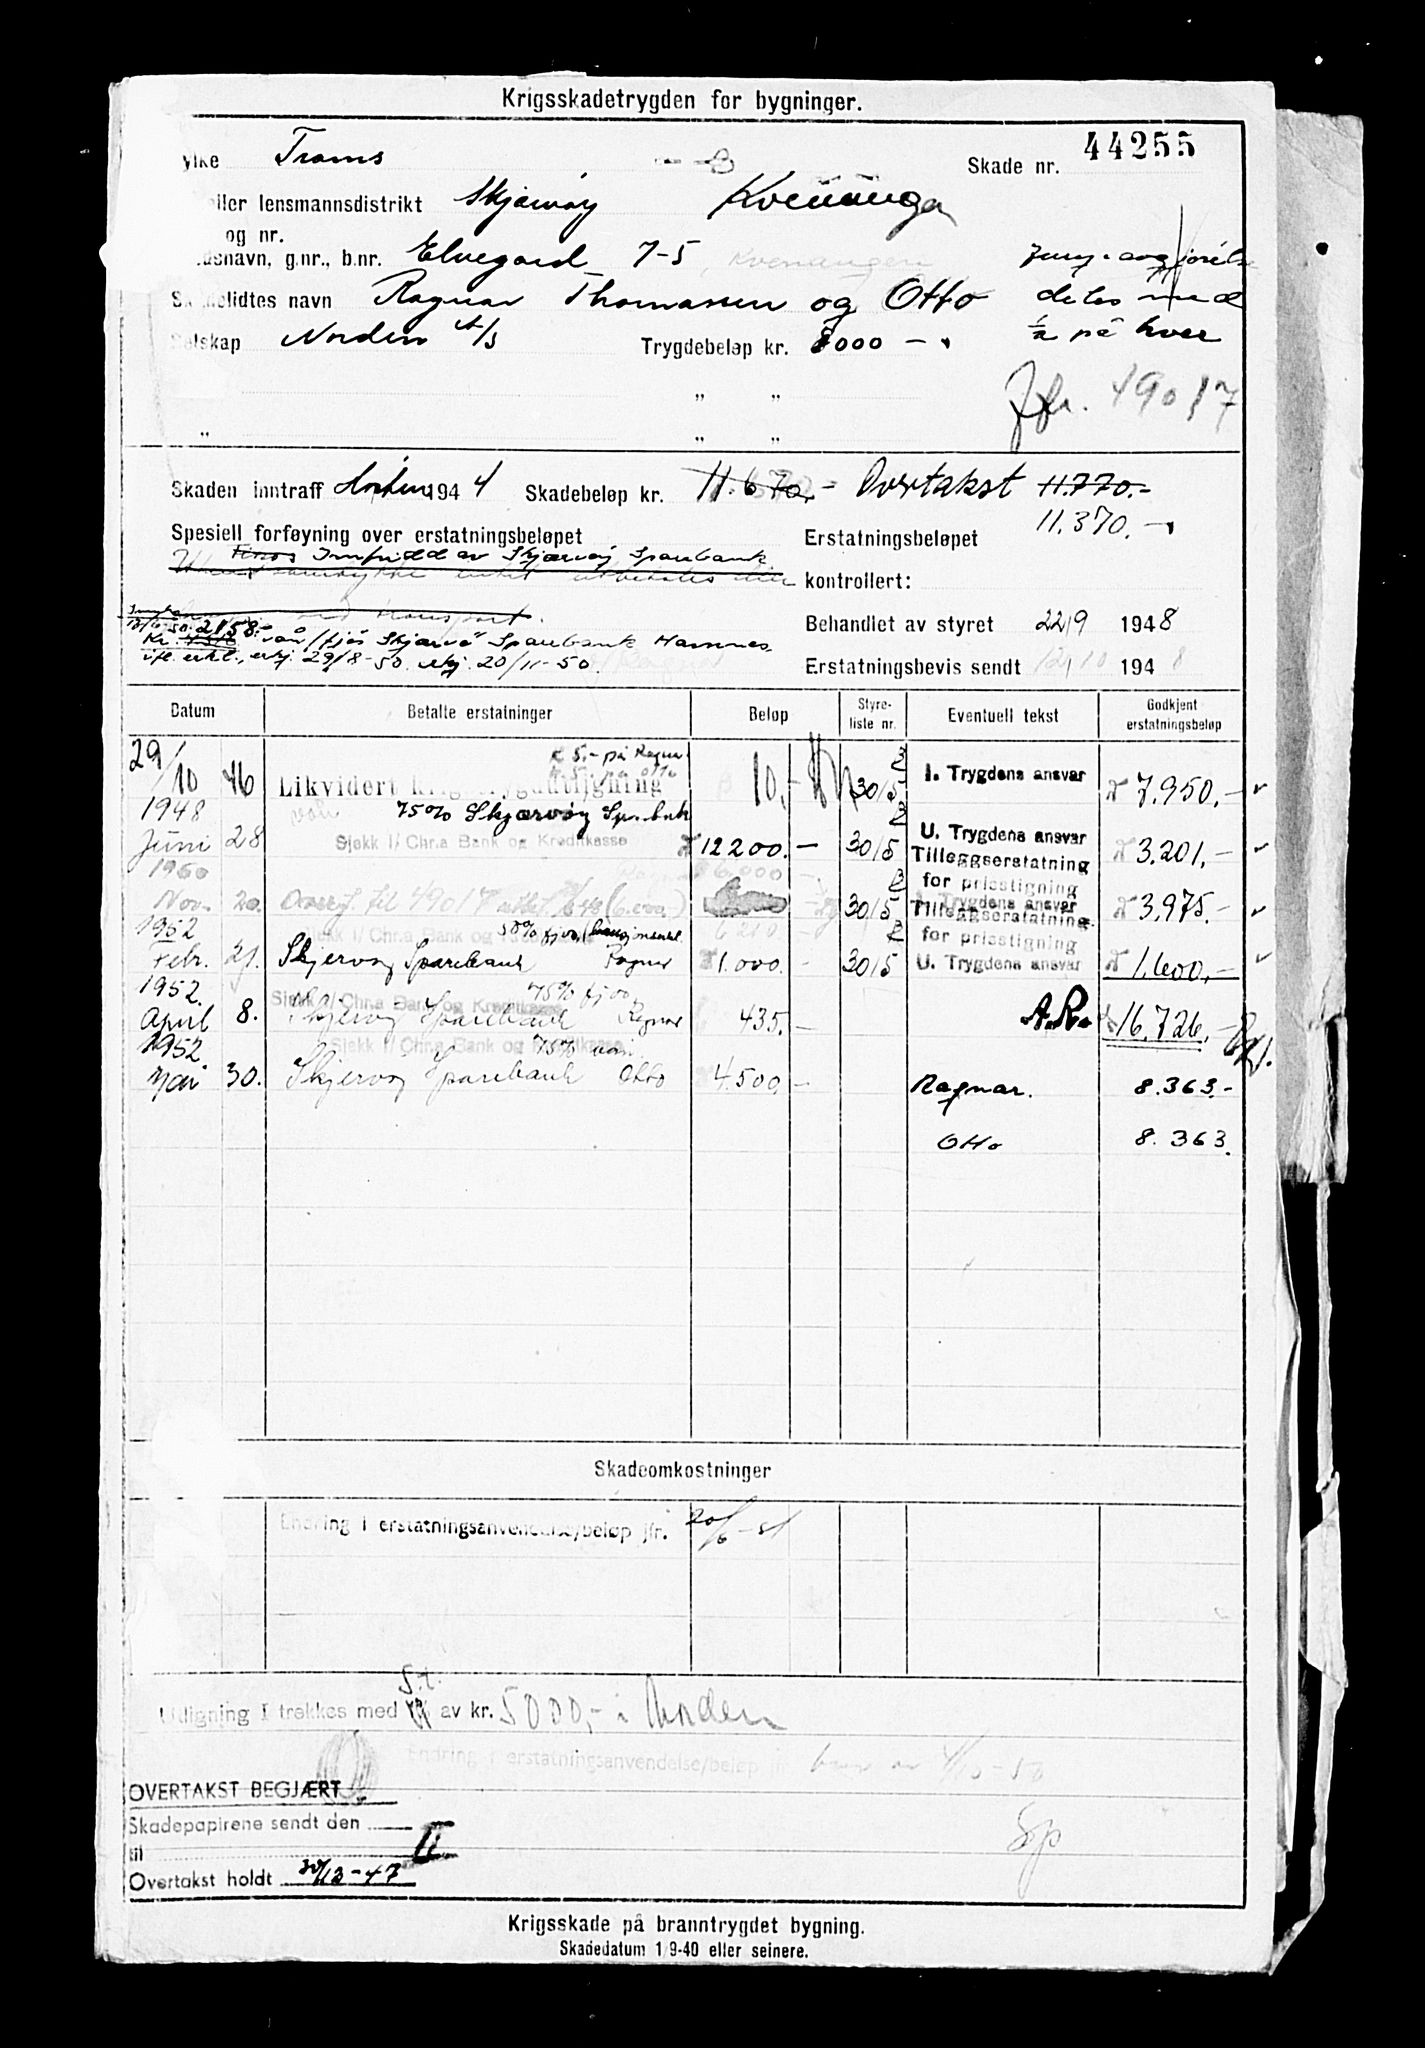 Krigsskadetrygden for bygninger.
ylke Troms Skade nr. 44255
eller lensmannsdistrikt Skjervøy Kvenanger
og nr.
usnavn, g.nr., b.nr. Elvegard 7-5, Kvenangen
lidtes navn Ragnar Thomassen og Otto deles med
elskap Norden A/S Trygdebeløp kr. 8000 - 1/2 på hver
" "
Jfr. 49017
" " "
Skaden inntraff Høsten 1944 Skadebeløp kr. 11.670,- Overtakst 11.770.-
11.370.-
Spesiell forføyning over erstatningsbeløpet Erstatningsbeløpet
Innfridd av Skjærvøy Sparebank
kontrollert:
transport.
2158.- Skjærvø Sparebank Hamnes
Behandlet av styret 22/9 1948
ifl. erkl., erkj. 29/8-50. erkj. 20/11-50.
Erstatningsbevis sendt 12/10 1948
Datum Betalte erstatninger Beløp Styreliste nr. Eventuell tekst Godkjent erstatningsbeløp
5.- på Ragnar
5.- på Otto
29/10 46 Likvidert krigstrygdutligning 10.- 30/5 I. Trygdens ansvar 7.950.-
1948 75% Skjervøy Sp.bnk
Juni 28 Sjekk I/ Chr.a Bank og Kreditkasse 12200.- 30/5 U. Trygdens ansvar
Tilleggserstatning
for prisstigning 3.201.-
1950 6.000
Nov. 20. Overf. til 49017 (6.000,-) 30/5 I. Trygdens ansvar
Tilleggserstatning
for prisstigning 3.975.-
1952 Sjekk I/ Chr.a Bank og Kreditkasse 6210.-
Febr. 21. Skjervøy Sparebank Ragnar 1.000.- 30/5 U. Trygdens ansvar 1.600,-
1952. Sjekk I/ Chr.a Bank og Kreditkasse 75% fjøs
April 8. Skjervøy Sparebank Ragnar 435.- A.R. 16.726,-
1952 Sjekk I/ Chr.a Bank og Kreditkasse 75% vån.
Mai 30. Skjervøy Sparebank Otto 4.500,- Ragnar. 8.363.-
Otto 8.363.
Skadeomkostninger
Endring i erstatningsanvendelse/beløp jfr. 20/6-51
S.t.
Utligning I trekkes med av kr. 5000,- i Norden
Endring i erstatningsanvendelse/beløp jfr
OVERTAKST BEGJÆRT
Skadepapirene sendt den
til II
Sp
Overtakst holdt 30/12-47
Krigsskade på branntrygdet bygning.
Skadedatum 1/9-40 eller seinere.